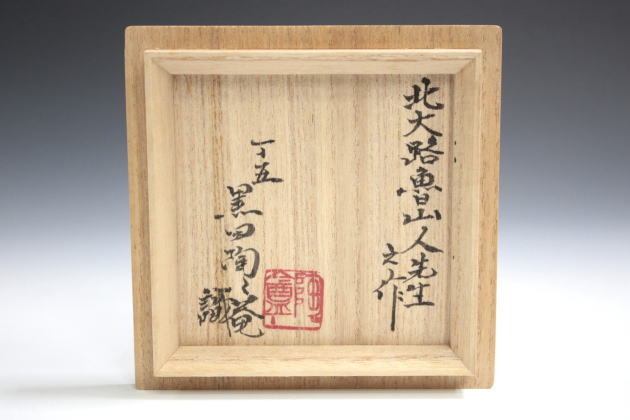 北大路魯山人先生
之作
丁五
黒田陶々菴
識